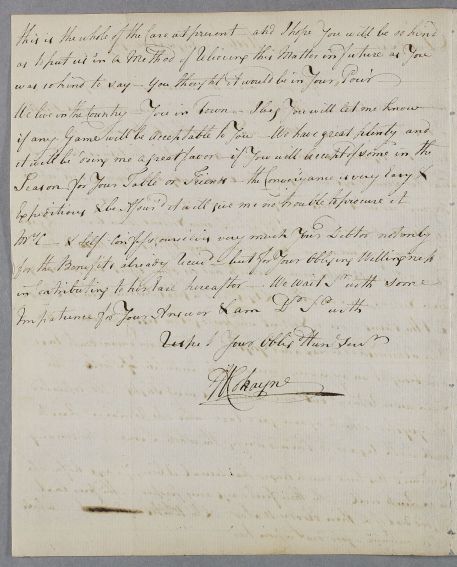 this is the whole of the Case at present - and I hope You will be so kind
as to put us in a Method of Viewing this Matter in future as You
was so kind to say - You thought it would be in Your Pow'r
We live in the Country - You in Town - Pray You will let me know
if any Game will be acceptable to You - We have great plenty and
it will be doing me a great favor if You will accept of some in the
Season for Your Table or Friends - the Conveyance is very easy &
Expeditious & be assur'd it will give me no trouble to procure it
Mrs C - & Self confess ourselves very much Your Debtor not only
for the Benefits already Receiv'd - but for Your obliging Willingness
in contributing to her ease hereafter - We wait Sr with some
Impatience for Your Answer & am Dr Sr with
Respect Your Oblig'd Hum Servt
Cokayne